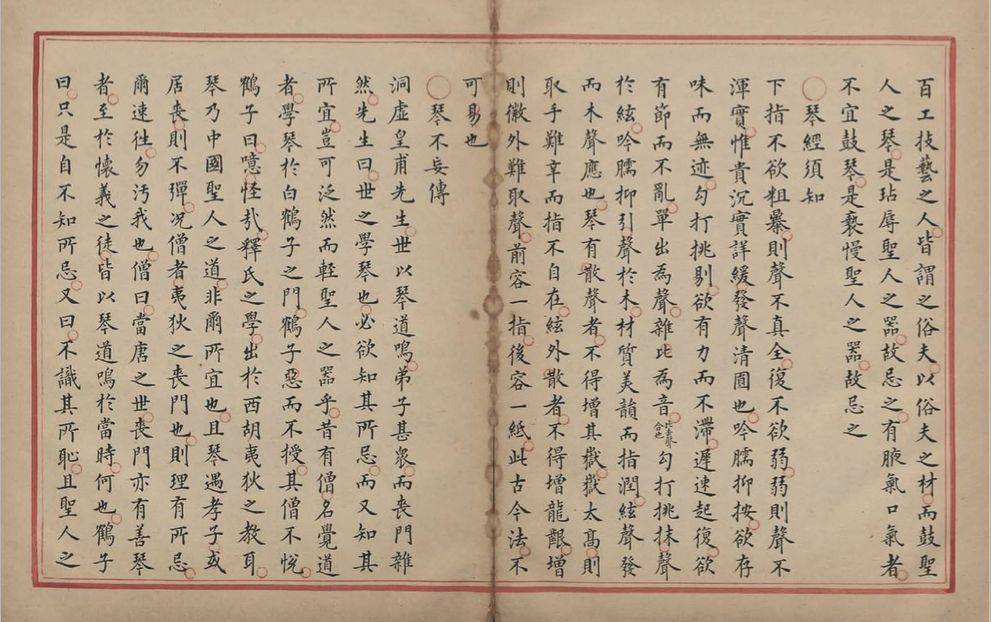 百工技藝之人皆謂之俗夫以俗夫之材而鼓聖
人之琴是玷辱聖人之器故忌之有腋氣口氣者
不宜鼓琴是褻慢聖人之器故忌之
○琴經須知
下指不欲粗暴則聲不真全復不欲弱弱則聲不
渾實惟貴沉實詳緩發聲清圓也吟臑抑按欲存
味而無迹勾打挑剔欲有力而不滯遲速起復欲
有節而不亂單出為聲雜比為音勾打挑抹聲
於絃吟臑抑引聲於木材質美韻而指潤絃聲發
而木聲應也琴有散聲者不得增其嶽嶽太高則
取手難辛而指不自在絃外散者不得增龍齦增
則徽外難取聲前容一指後容一紙此古今法不
可易也
○琴不妄傳
洞虛皇甫先生世以琴道鳴弟子甚衆而喪門雜
然先生曰世之學琴也必欲知其所忌而又知其
所宜豈可泛然而輕聖人之器乎昔有僧名覺道
者學琴於白鶴子之門鶴子惡而不授其僧不悅
鶴子曰噫怪㢤釋氏之學出於西胡夷狄之教耳
琴乃中國聖人之道非爾所宜也且琴遇孝子或
居喪則不彈况僧者夷狄之喪門也則理有所忌
爾速徃勿污我也僧曰當唐之世喪門亦有善琴
者至於懷義之徒皆以琴道鳴於當時何也鶴子
曰只是自不知所忌又曰不識其所恥且聖人之